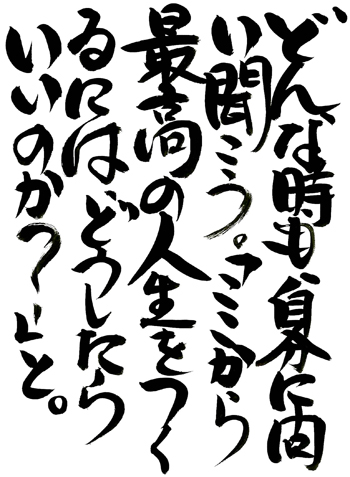 どんな時も、自分に問
い聞こう。「ここから
最高の人生をつく
るにはどうしたら
いいのか?」と。